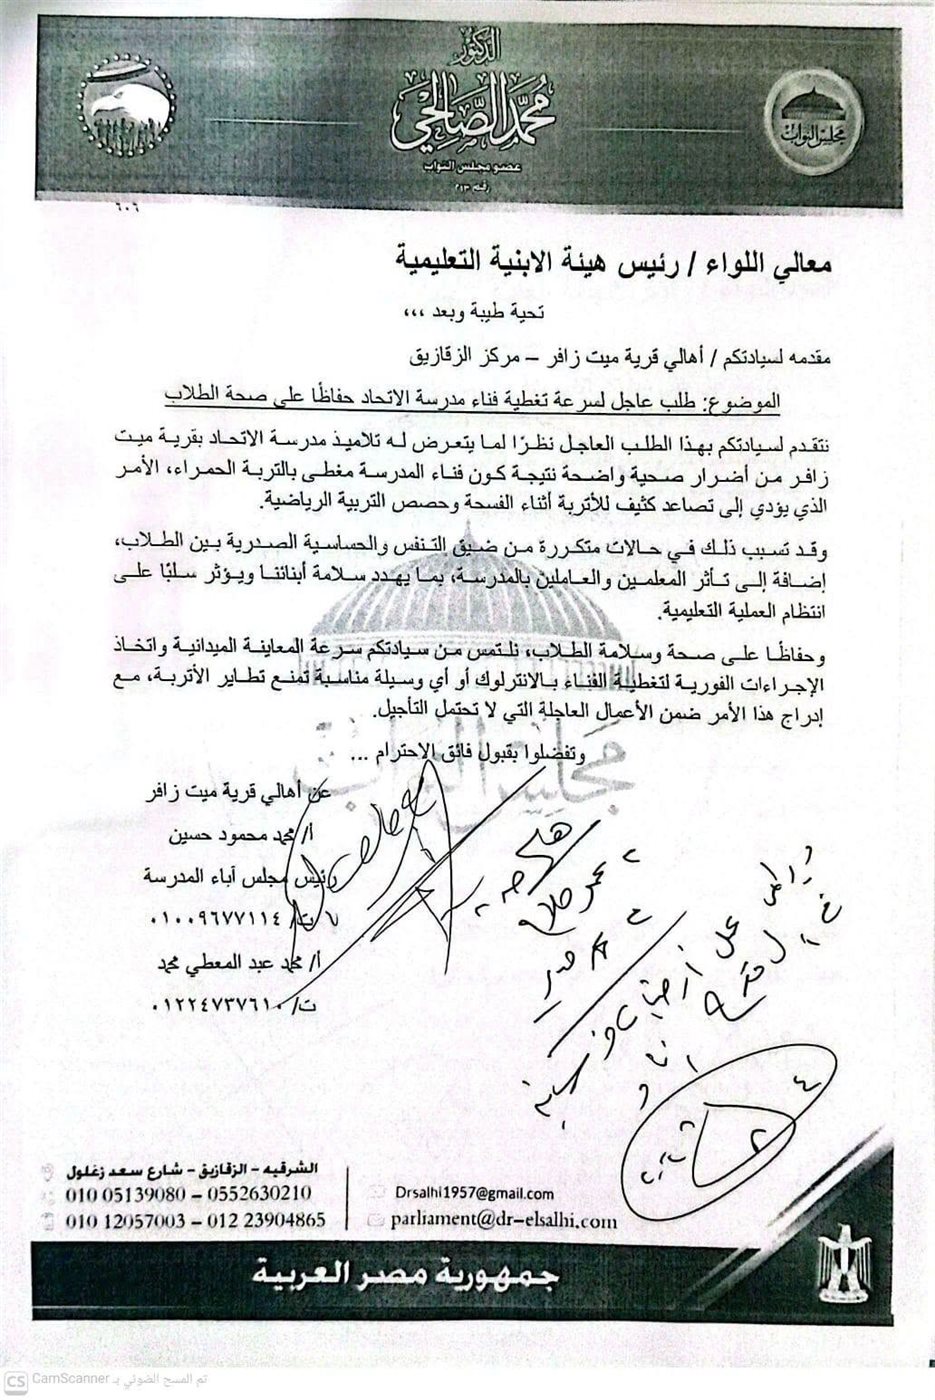 الدكتور
محمد الصالحي
عضو مجلس النواب
رقم ٢١٣
مجلس النواب
٦٠٦
معالي اللواء / رئيس هيئة الابنية التعليمية
تحية طيبة وبعد ،،،
مقدمه لسيادتكم / أهالي قرية ميت زافر – مركز الزقازيق
الموضوع: طلب عاجل لسرعة تغطية فناء مدرسة الاتحاد حفاظًا على صحة الطلاب
نتقدم لسيادتكم بهذا الطلب العاجل نظرًا لما يتعرض له تلاميذ مدرسة الاتحاد بقرية ميت
زافر من أضرار صحية واضحة نتيجة كون فناء المدرسة مغطى بالتربة الحمراء، الأمر
الذي يؤدي إلى تصاعد كثيف للأتربة أثناء الفسحة وحصص التربية الرياضية.
وقد تسبب ذلك في حالات متكررة من ضيق التنفس والحساسية الصدرية بين الطلاب،
إضافة إلى تأثر المعلمين والعاملين بالمدرسة، بما يهدد سلامة أبنائنا ويؤثر سلبًا على
انتظام العملية التعليمية.
وحفاظًا على صحة وسلامة الطلاب، نلتمس من سيادتكم سرعة المعاينة الميدانية واتخاذ
الإجراءات الفورية لتغطية الفناء بالانترلوك أو أي وسيلة مناسبة تمنع تطاير الأتربة، مع
إدراج هذا الأمر ضمن الأعمال العاجلة التي لا تحتمل التأجيل.
وتفضلوا بقبول فائق الاحترام ...
مجلس النواب
عن أهالي قرية ميت زافر
أ/ محمد محمود حسين
رئيس مجلس أباء المدرسة
ت/ ٠١٠٠٩٦٧٧١١٤
أ/ محمد عبد المعطي محمد
ت/ ٠١٢٢٤٧٣٧٦١٠
الشرقيه - الزقازيق - شارع سعد زغلول
010 05139080 – 0552630210
010 12057003 – 012 23904865
Drsalhi1957@gmail.com
parliament@dr-elsalhi.com
جمهورية مصر العربية
CS CamScanner تم المسح الضوئي بـ